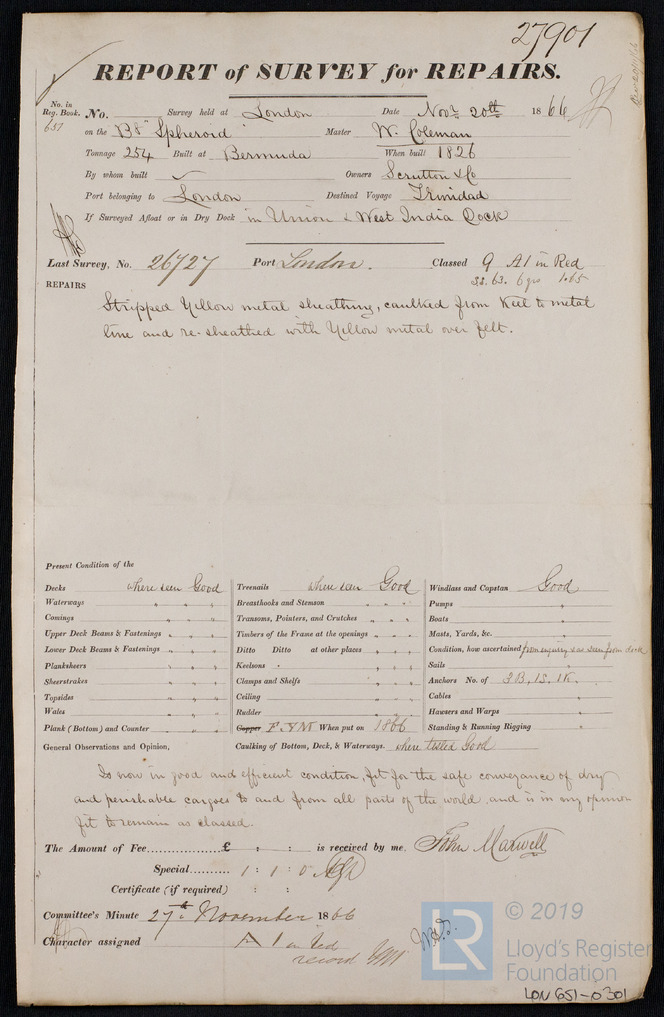 27901
REPORT of SURVEY for REPAIRS.
No. in Reg. Book. 637 No. Survey held at London Date Novr 20th 1866
on the Bk "Spheroid" Master W. Coleman
Tonnage 254 Built at Bermuda When built 1826
By whom built Owners Scrutton & Co
Port belonging to London Destined Voyage Trinidad
If Surveyed Afloat or in Dry Dock in Union & West India Dock
Last Survey, No. 26727 Port London. Classed 9 A1 in Red
SS. 63. 6 yrs 1.65
REPAIRS
Stripped Yellow metal sheathing, caulked from Keel to metal
line and re-sheathed with Yellow metal over felt.
Present Condition of the
Decks where seen Good Treenails where seen Good Windlass and Capstan Good
Waterways " " " Breasthooks and Stemson " " " Pumps "
Comings " " " Transoms, Pointers, and Crutches " " " Boats "
Upper Deck Beams & Fastenings " " " Timbers of the Frame at the openings " " " Masts, Yards, &c. "
Lower Deck Beams & Fastenings " " " Ditto Ditto at other places " " " Condition, how ascertained from enquiry & as seen from deck
Planksheers " " " Keelsons " " " Sails "
Sheerstrakes " " " Clamps and Shelfs " " " Anchors No. of 3B, 1S, 1K.
Topsides " " " Ceiling " " " Cables "
Wales " " " Rudder " " " Hawsers and Warps "
Plank (Bottom) and Counter " " " Copper F. YM When put on 1866 Standing & Running Rigging "
General Observations and Opinion, Caulking of Bottom, Deck, & Waterways. where tested Good
Is now in good and efficient condition, fit for the safe conveyance of dry
and perishable cargoes to and from all parts of the world, and is in my opinion
fit to remain as classed.
The Amount of Fee................£ : : is received by me, John Maxwell
Special.......... 1 : 1 : 0
Certificate (if required) : :
Committee's Minute 27th November 1866
Character assigned A 1 in red
record
© 2019
LR Lloyd's Register
Foundation
LON 651-0301